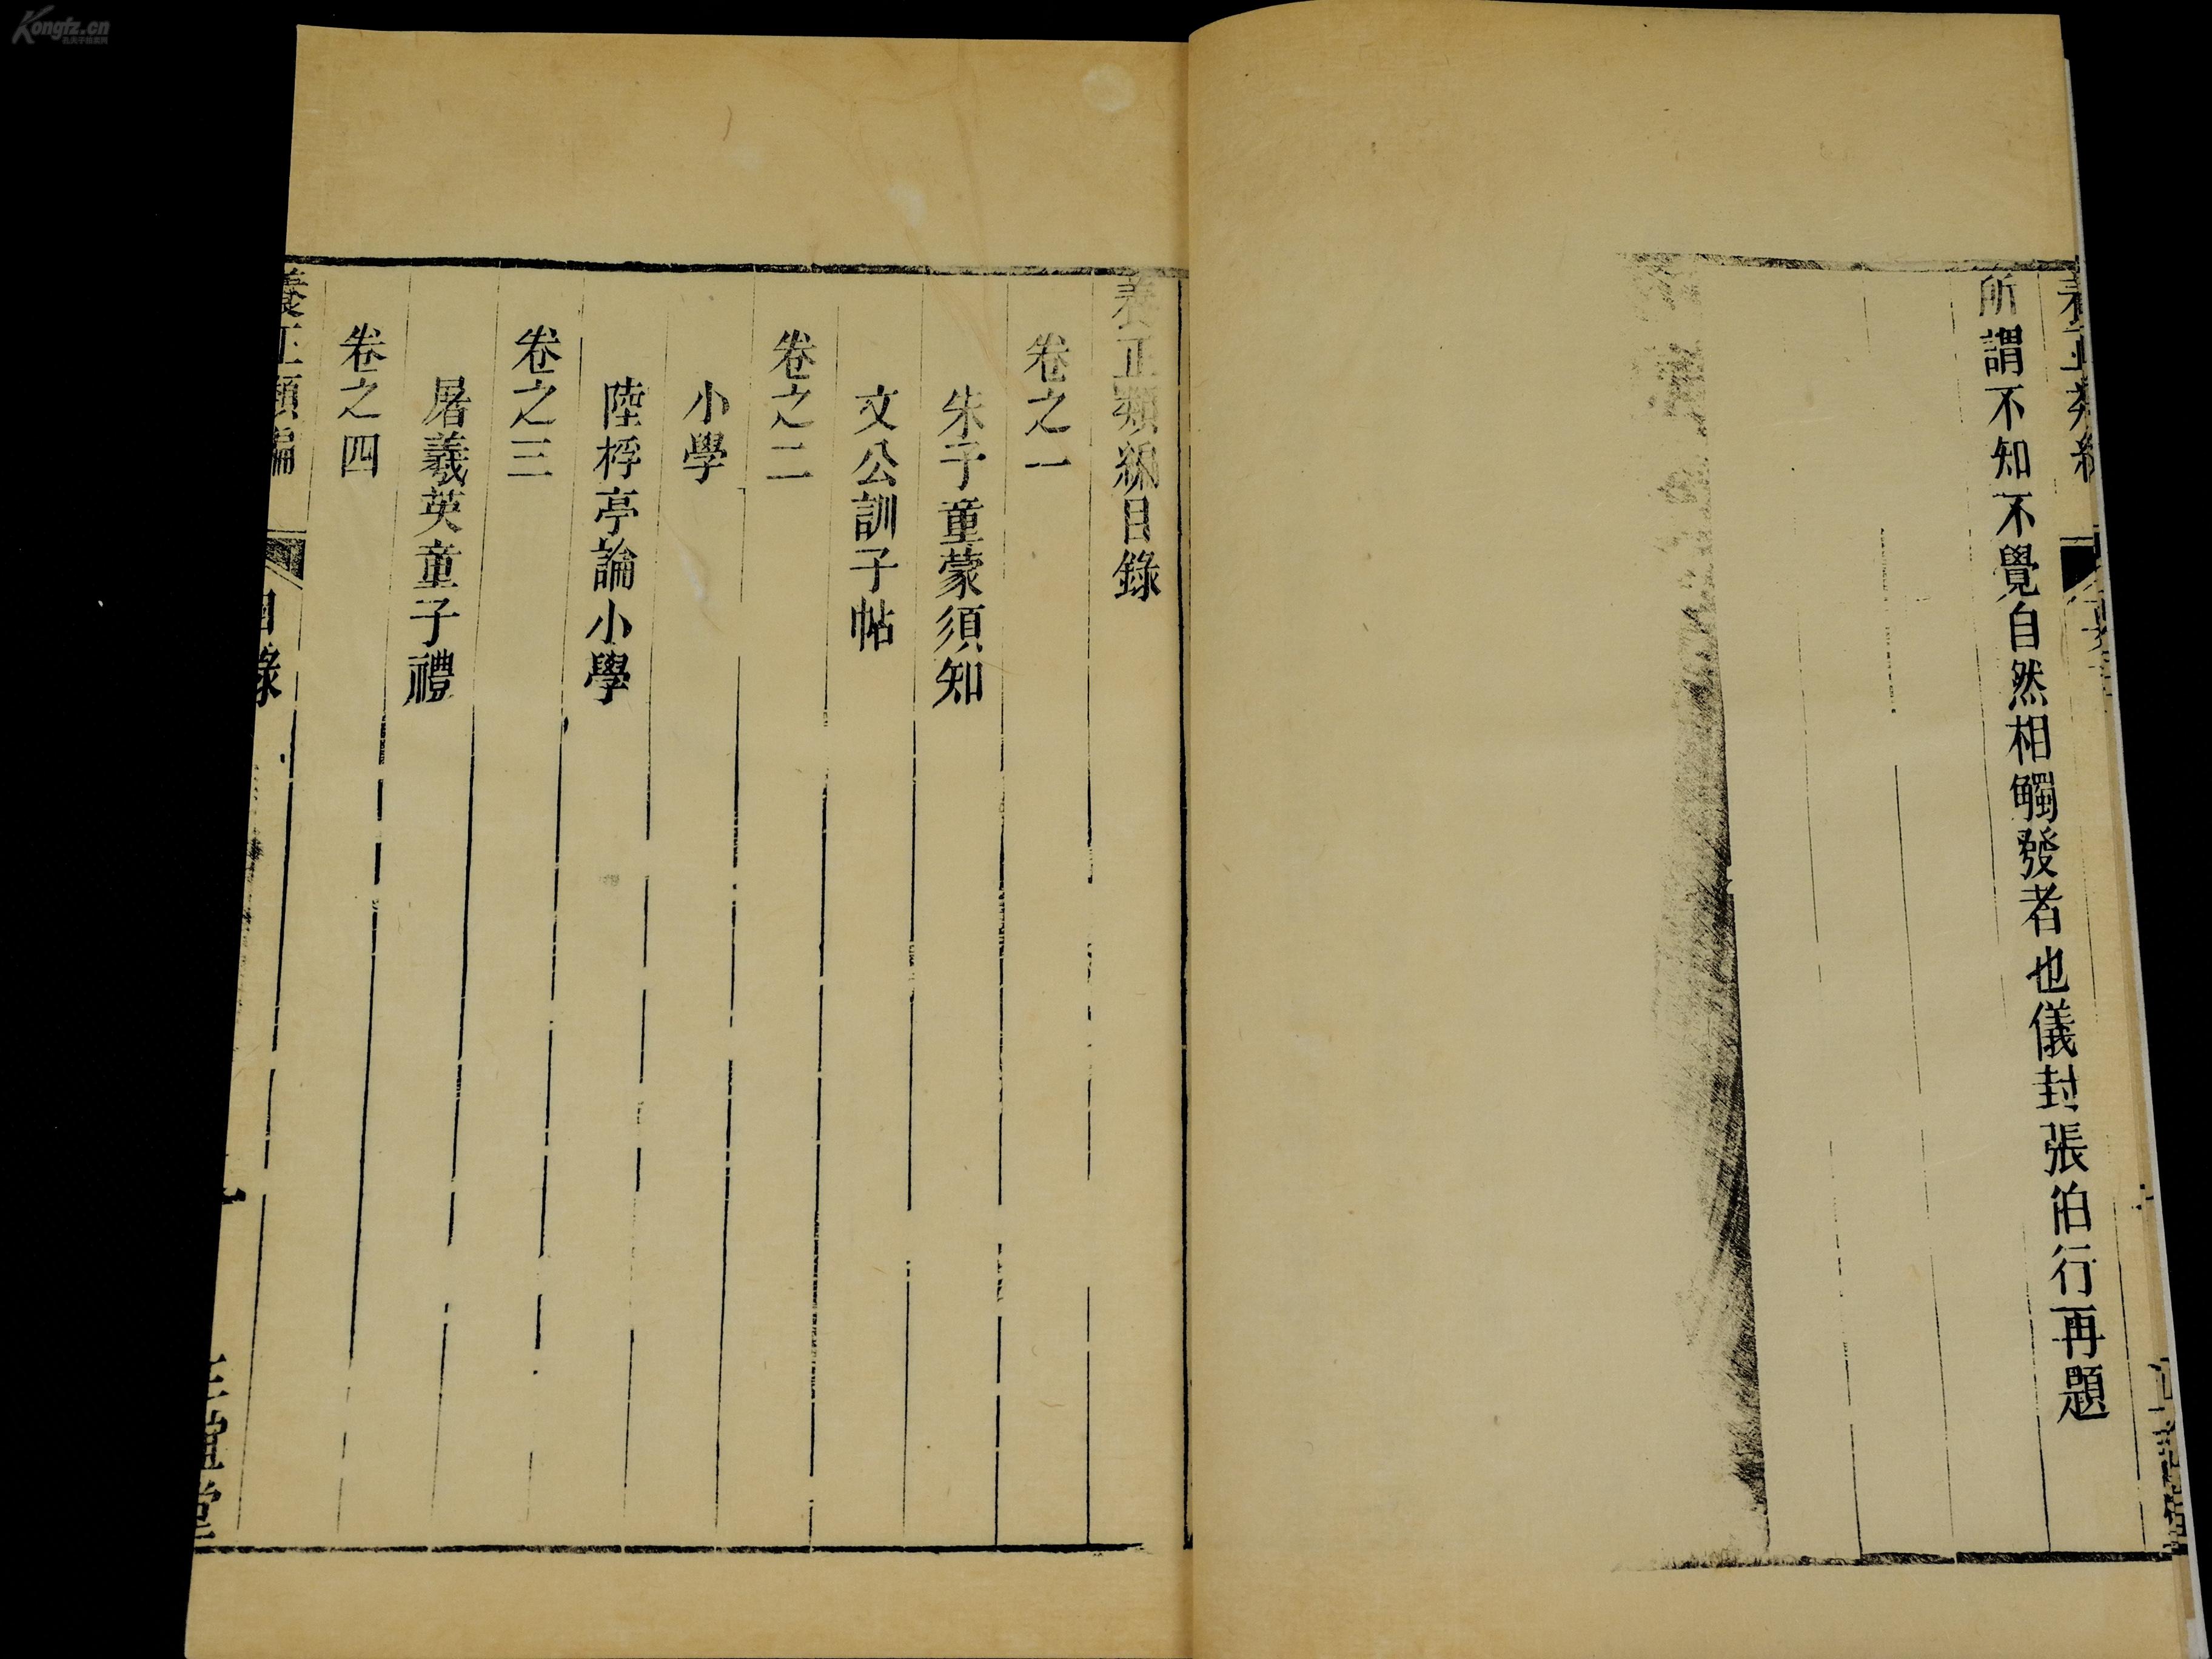 所謂不知不覺自然相觸發者也儀封張伯行再題
養正類編目錄
卷之一
朱子童蒙須知
文公訓子帖
卷之二
小學
陸桴亭論小學
卷之三
屠羲英童子禮
卷之四
養正類編
目錄
正誼堂
Kongfz.cn